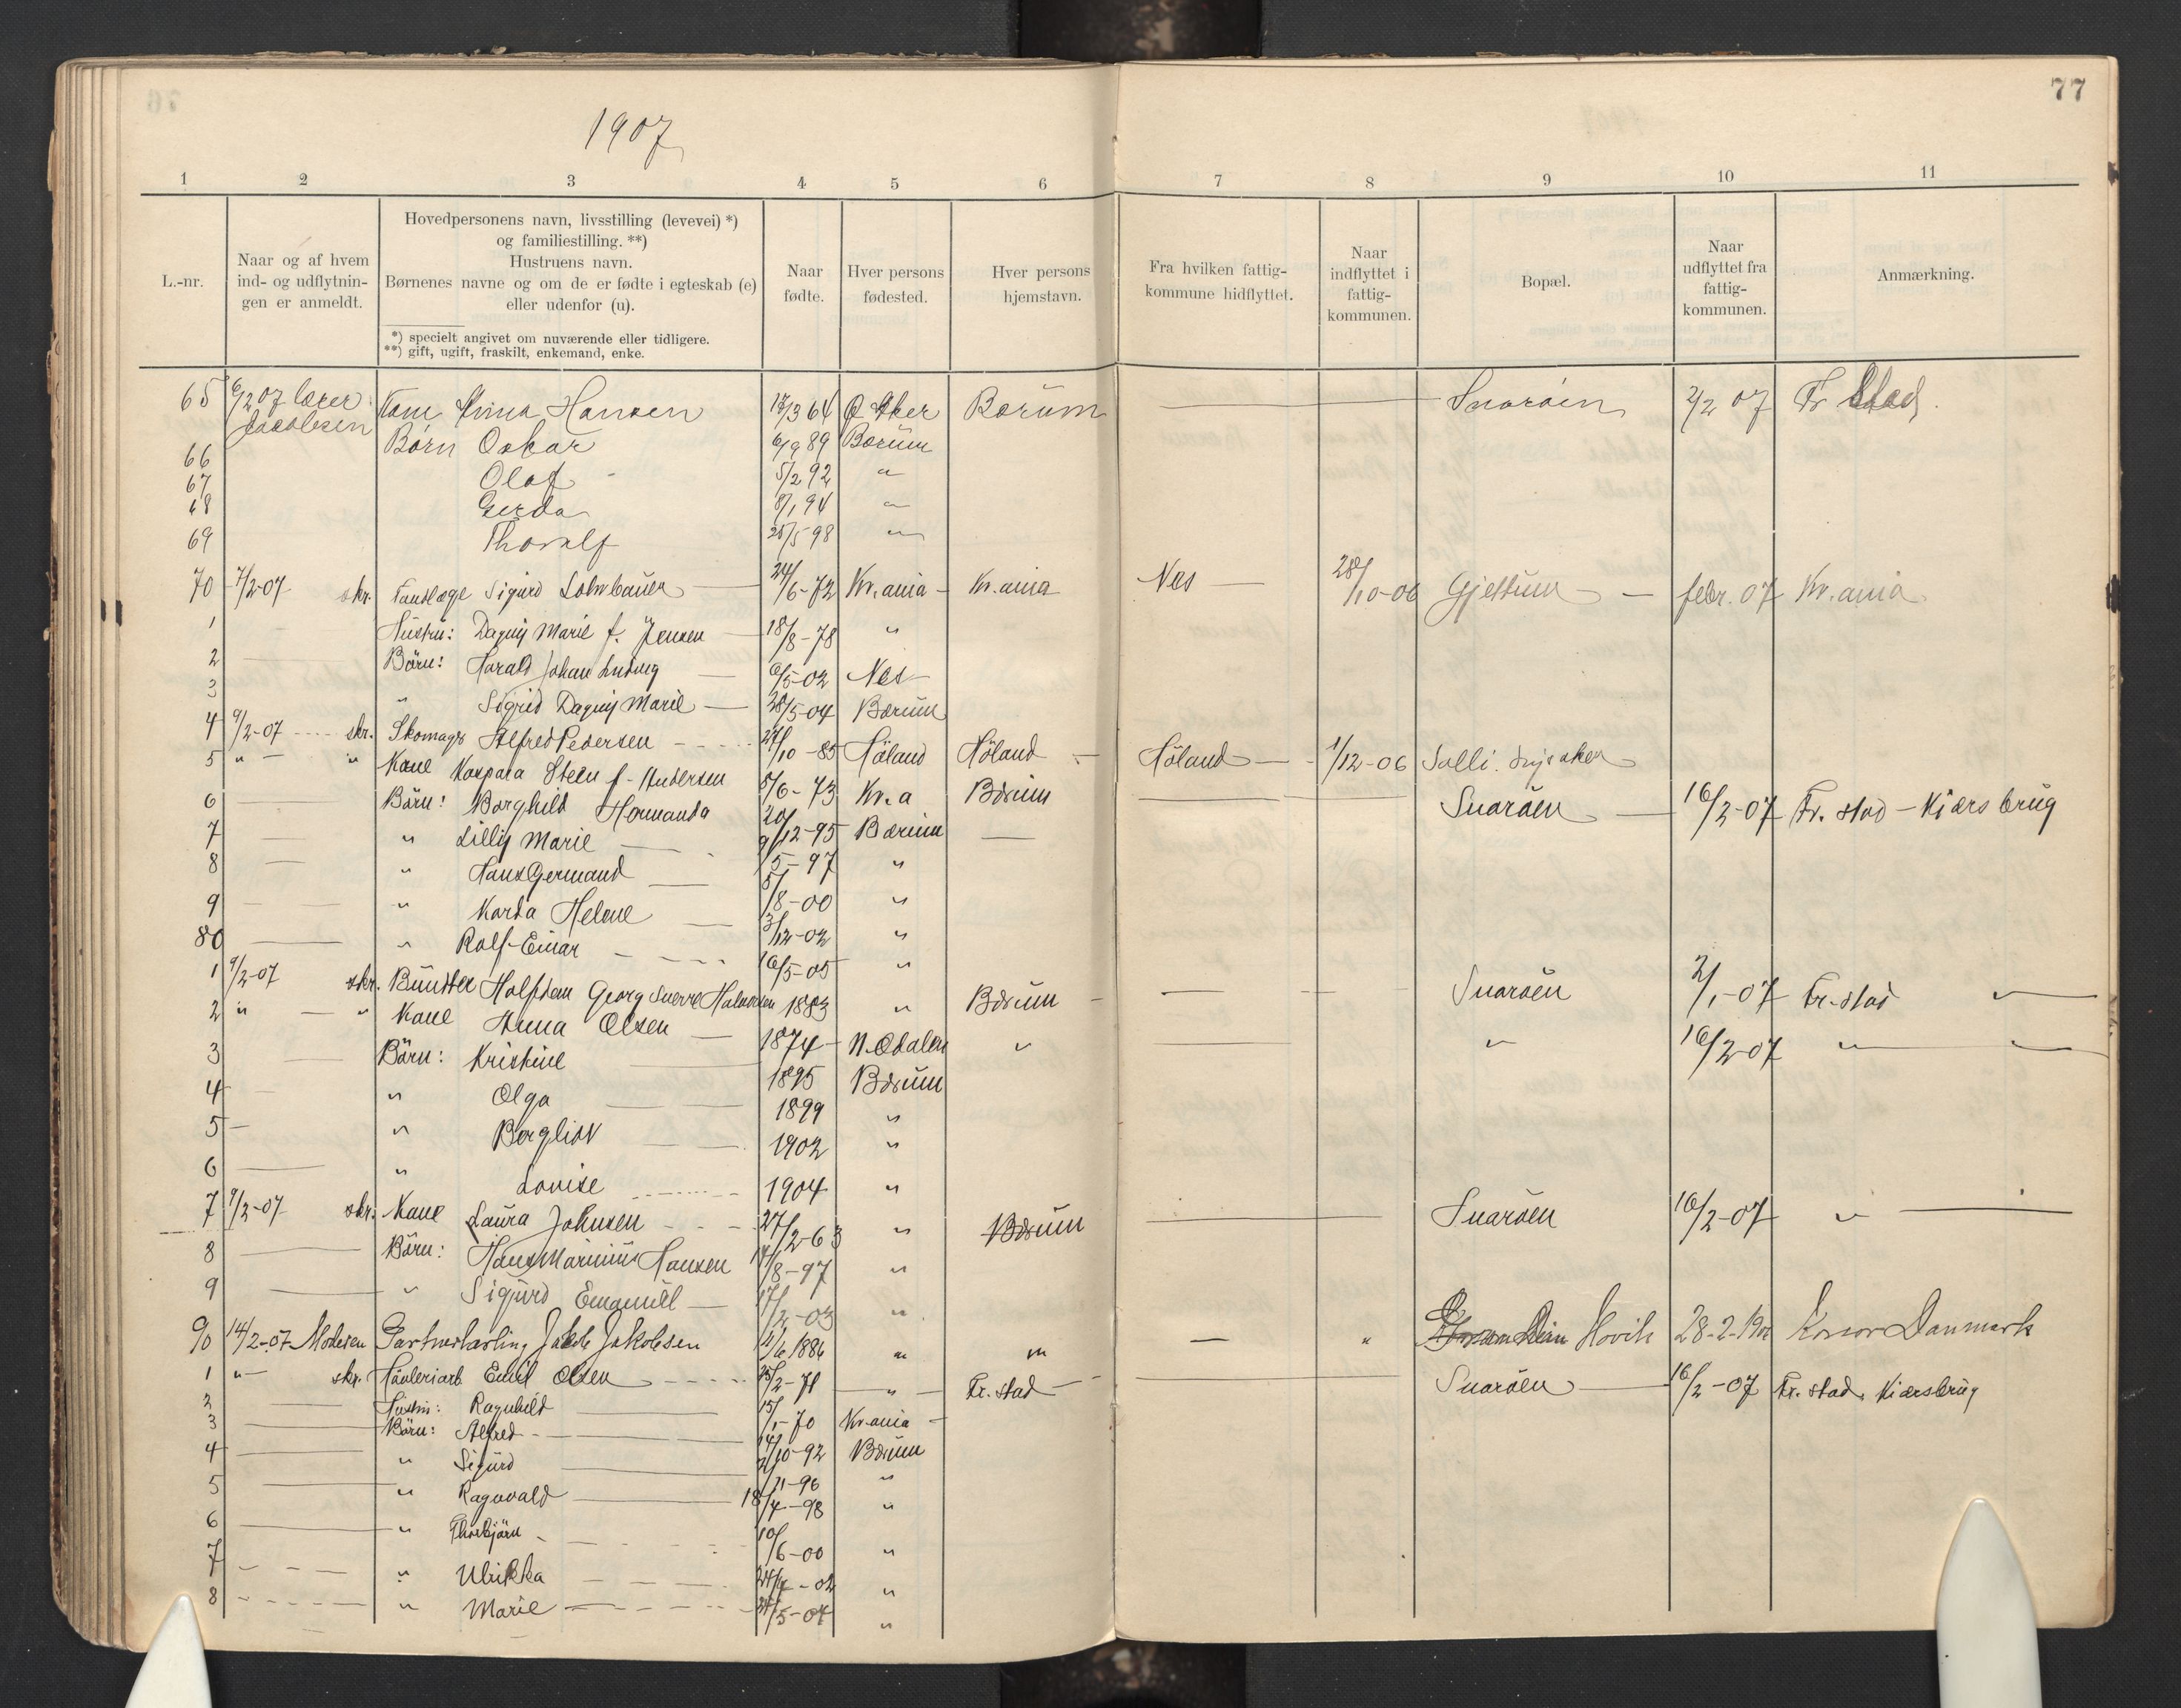 77
1907
1 2 3 4 5 6 7 8 9 10 11
L.-nr.
Naar og af hvem
ind- og udflytnin-
gen er anmeldt.
Hovedpersonens navn, livsstilling (levevei) *)
og familiestilling. **)
Hustruens navn.
Børnenes navne og om de er fødte i egteskab (e)
eller udenfor (u).
*) specielt angivet om nuværende eller tidligere.
**) gift, ugift, fraskilt, enkemand, enke.
Naar
fødte.
Hver persons
fødested.
Hver persons
hjemstavn.
Fra hvilken fattig-
kommune hidflyttet.
Naar
indflyttet i
fattig-
kommunen.
Bopæl.
Naar
udflyttet fra
fattig-
kommunen.
Anmærkning.
65 6/2 07 lærer Kone Anna Hansen 17/3 64 Ø Aker Bærum — Snarøen 2/2 07 Fr Stad.
Jacobsen
66 Børn Oskar 6/9 89 Bærum
67 Olaf 5/2 92 "
68 Gerda 8/1 94 "
69 Thoralf 25/5 98 "
70 7/2-07 skr. Tandlæge Sigurd — 24/6-72 Kr.ania - Kr.ania Nes — 28/10-06 Gjettum — febr. 07 Kr.ania
1 Hustru: Dagny Marie f. Jensen — 18/8-78 "
2 — Børn: Harald Johan Ludvig — 6/5-02 Nes
3 " Sigrid Dagny Marie — 28/5-04 Bærum
4 9/2-07 skr. Skomager Alfred Pedersen 27/10-85 Høland Høland - Høland — 1/12-06 Solli. Lysaker
5 " — " Kone Kaspara Steen f. Andersen 5/6-73 Kr.a Bærum — Snarøen — 16/2-07 Fr. stad - Kiærsbrug
6 — Børn: Borghild Hermanda 20/12-95 Bærum —
7 — " Lilly Marie — 9/5-97 "
8 — " Hans Germand — 5/8-00 "
9 — " Karda Helene — 3/12-02 "
80 — " Rolf-Einar — 16/5-05 "
1 9/2-07 skr. Halfdan Georg Sverre Halvorsen 1883 " Bærum - — Snarøen 2/1-07 Fr.stad " —
2 " — " Kone Anna Olsen — 1874 N.Odalen " — " 16/2-07 " —
3 — Børn: Kristine — 1895 Bærum
4 — " Olga — 1899 "
5 — " Bergliot — 1902 "
6 — " Lovise 1904 "
7 9/2-07 skr. Kone Laura Johnsen 27/2-63 " Bærum — Snarøen 16/2-07 " —
8 — Børn: Hans Marinius Hansen 17/8-97 "
9 — " Sigurd Emanuel — 17/2-03 "
90 14/2-07 Gartnerlærling Jakob Jakobsen 11/6 1886 " " — " Høvik 28-2-190 Korsør Danmark
1 " — skr. Høvleriarb. Emil Olsen 25/2-71 — " — Fr.stad — Snarøen — 16/2-07 Fr. stad, Kiærsbrug
2 — Hustru: Ragnhild — 15/1-70 Kr.ania -
3 — Børn: Alfred — 14/10-92 Bærum
4 — " Sigurd — /11-96 "
5 — " Ragnvald — 18/4-98 "
6 — " Thorbjørn 10/6-00 "
7 " Ulrikka 24/4-02 "
8 " Marie 24/5-04 "